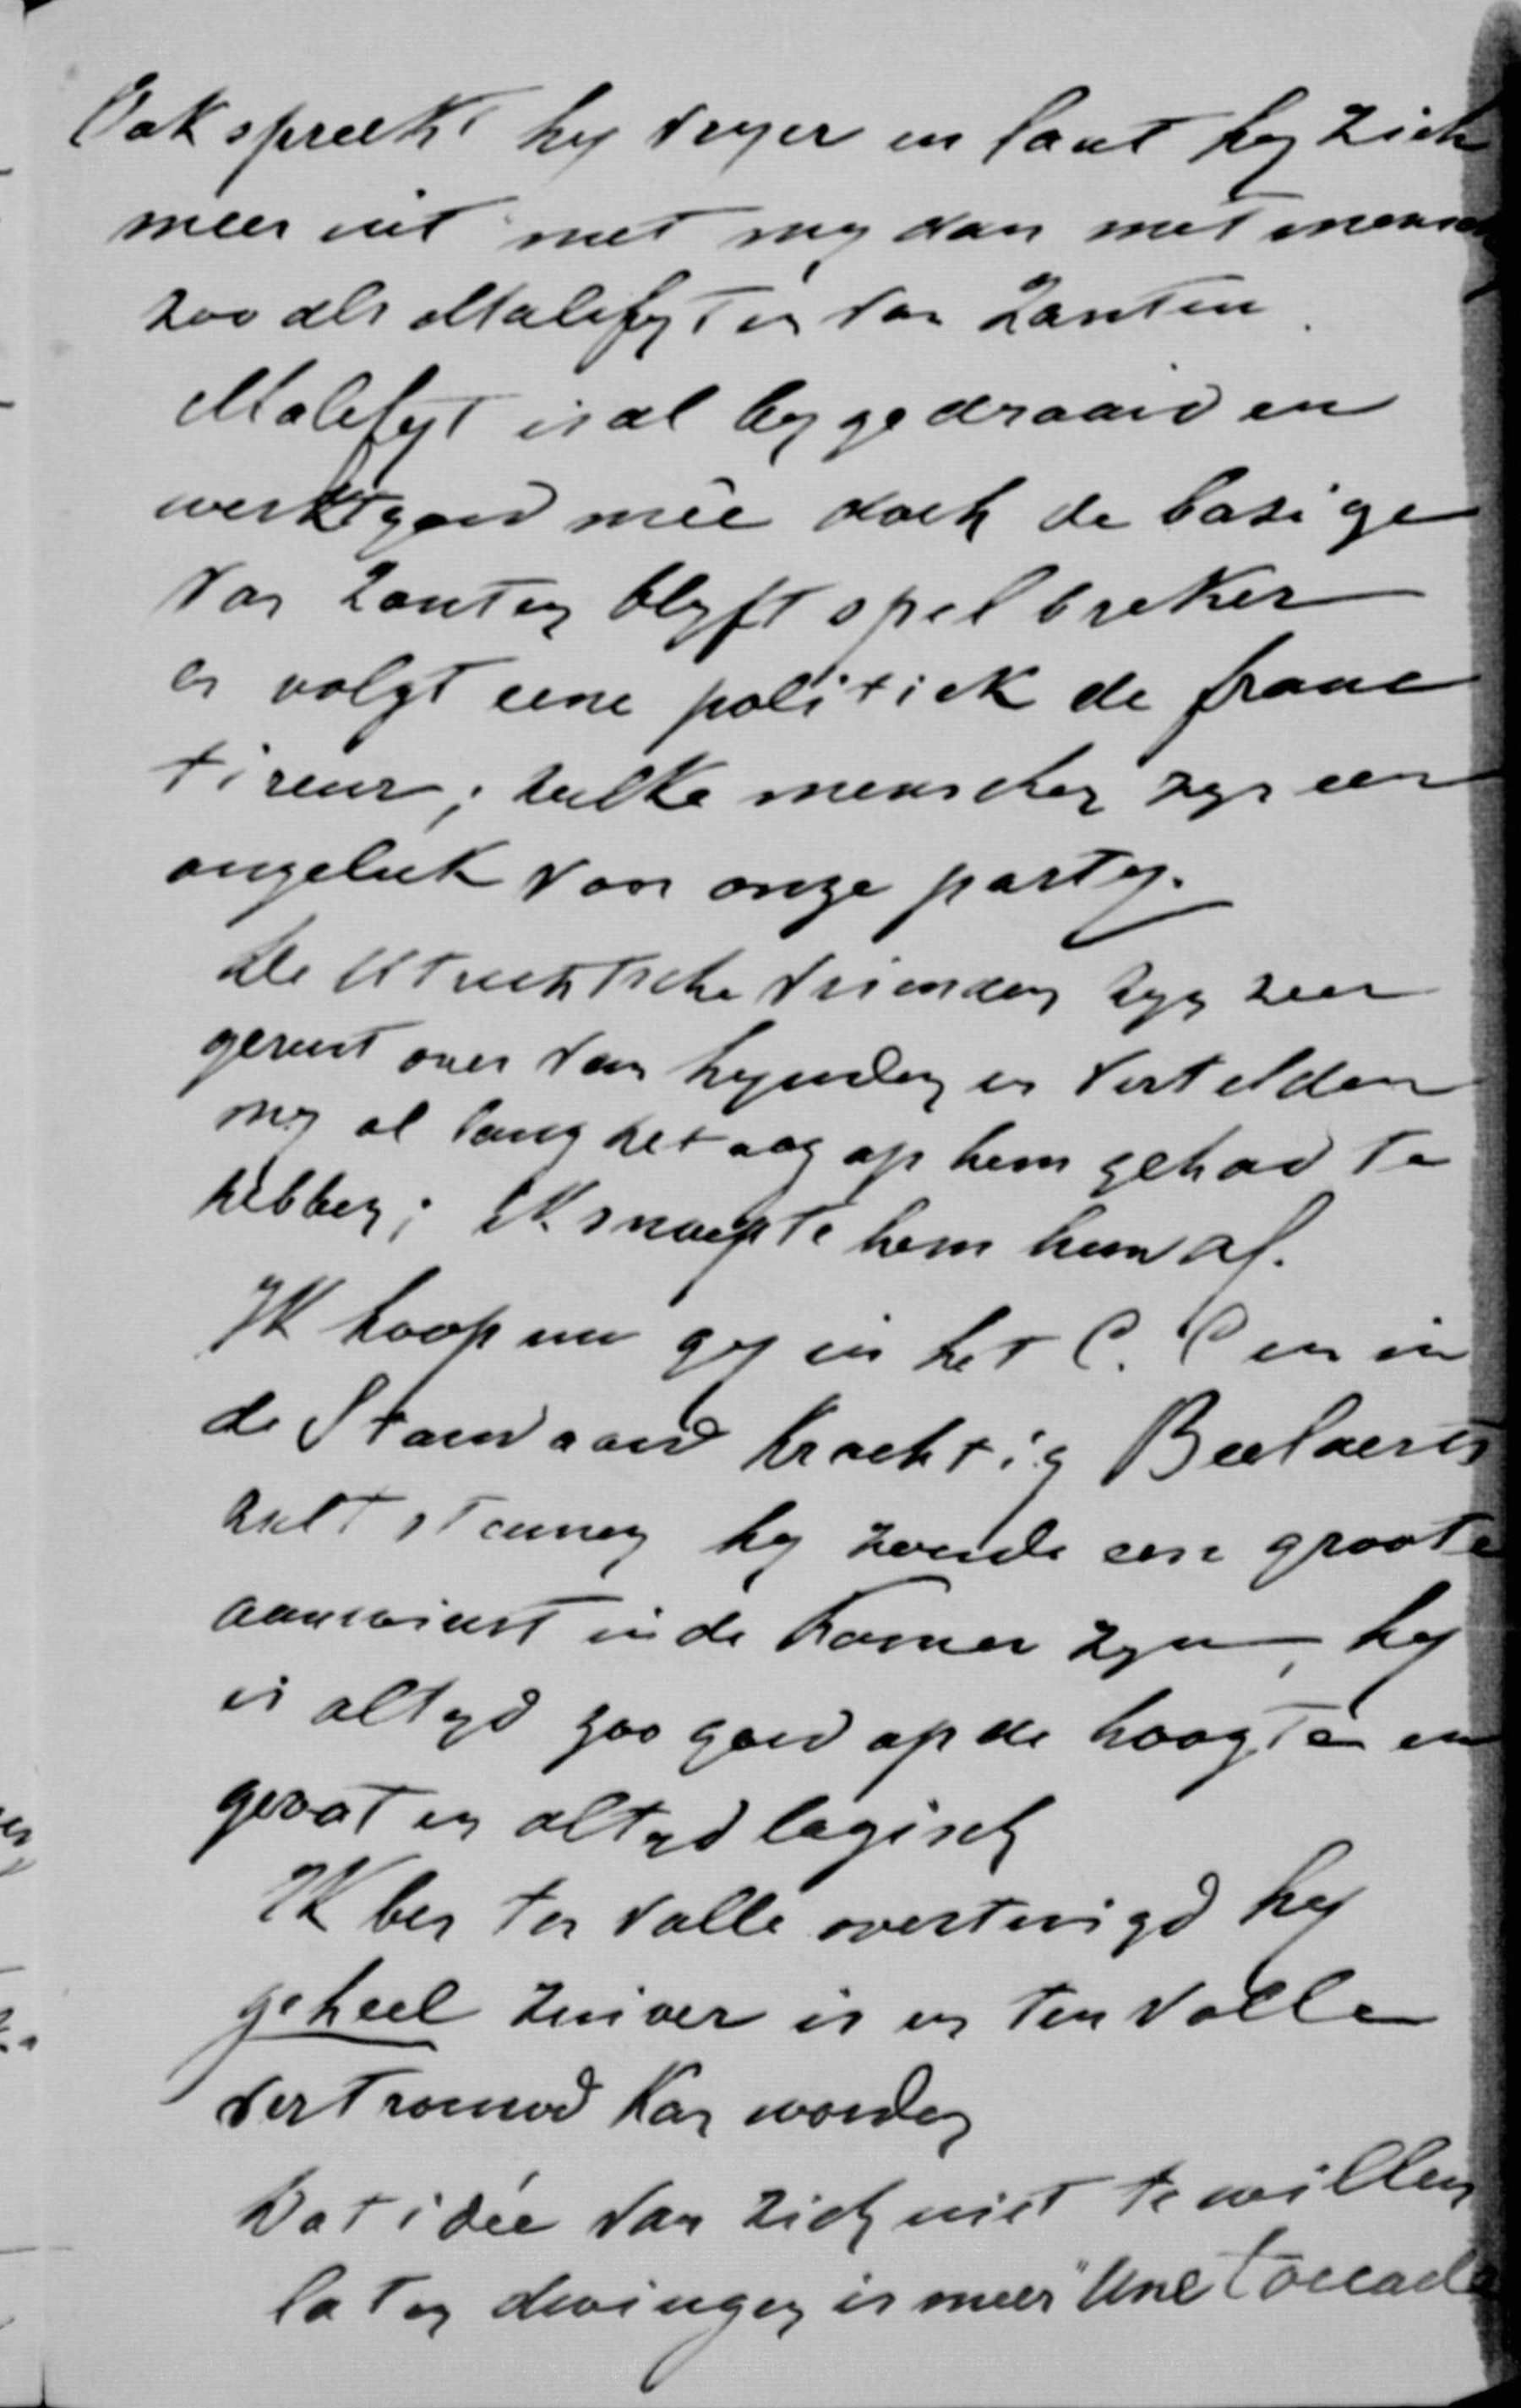 Ook spreekt hy vryer en laat hy zich
meer uit met my dan met mensch
zooals Malefyt en van Zanten.
Malefyt is al bygedraaid en
werkt goed mée doch de bazige
van Zanten blyft spelbreker
en volgt eene politiek de franc
tireur; zulke menschen zyn een
ongeluk voor onze party.
De Utrechtsche vrienden zyn zeer
gerust over van Lynden en vertelden
my al lang het oog op hem gehad te
hebben; ik snoepte hem hun af.
Ik hoop nu gy in het C. C en in
de Standaard krachtig Beelaerts
zult steunen hy zoude eene groote
aanwinst in de Kamer zyn, hy
is altyd zoo goed op de hoogte en
gevat en altyd logisch
Ik ben ten volle overtuigd hy
geheel zuiver is en ten volle
vertrouwd kan worden
Dat idée van zich niet te willen
laten dwingen is meer "une toccade